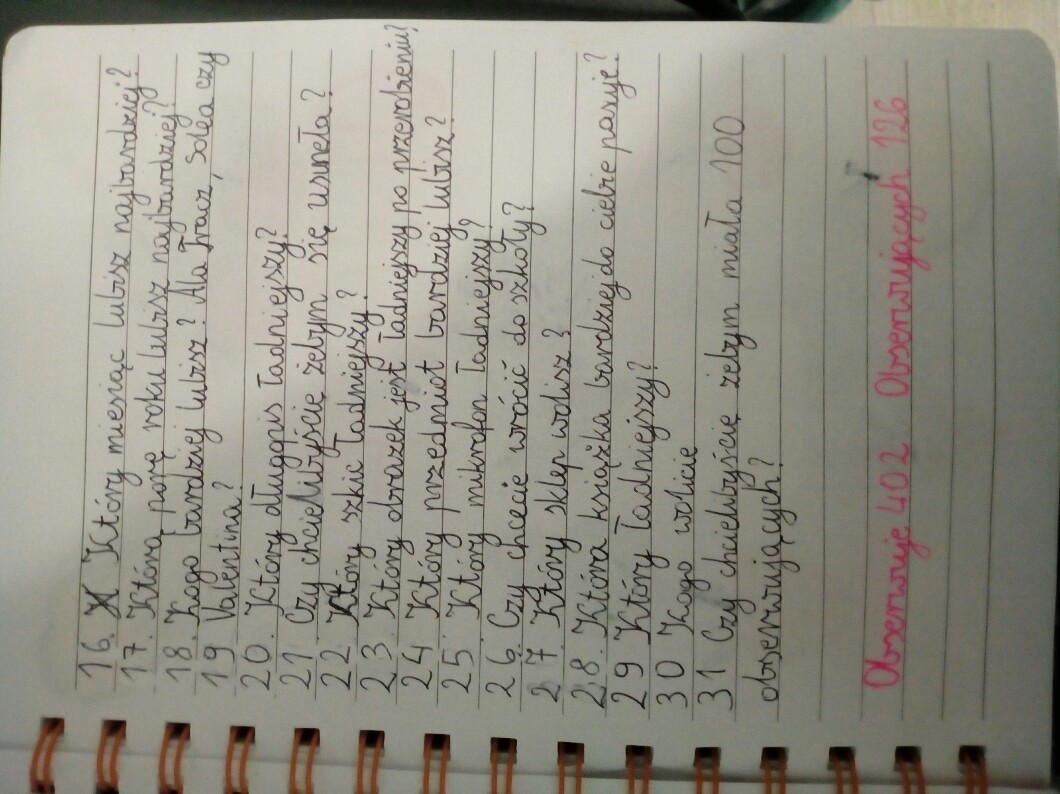 16. Który miesiąc lubisz najbardziej?
17. Która porę roku lubisz najbardziej?
18. Kogo bardziej lubisz? Ala Tracz, Solea czy
19 Valentina?
20. Który długopis ładniejszy?
21 Czy chcielibyście żebym się usuneła?
22 Który szkic ładniejszy?
23 Który obrazek jest ładniejszy po przerobieniu?
24 Który przedmiot bardziej lubisz?
25. Który mikrofon ładniejszy?
26. Czy chcecie wrócić do szkoły?
27 Który sklep wolisz?
28. Która książka bardziej do ciebie pasuje?
29 Który ładniejszy?
30 Kogo wolicie
31 Czy chcielibyście żebym miała 100
obserwujących?
Obserwuje 402 Obserwujących 126